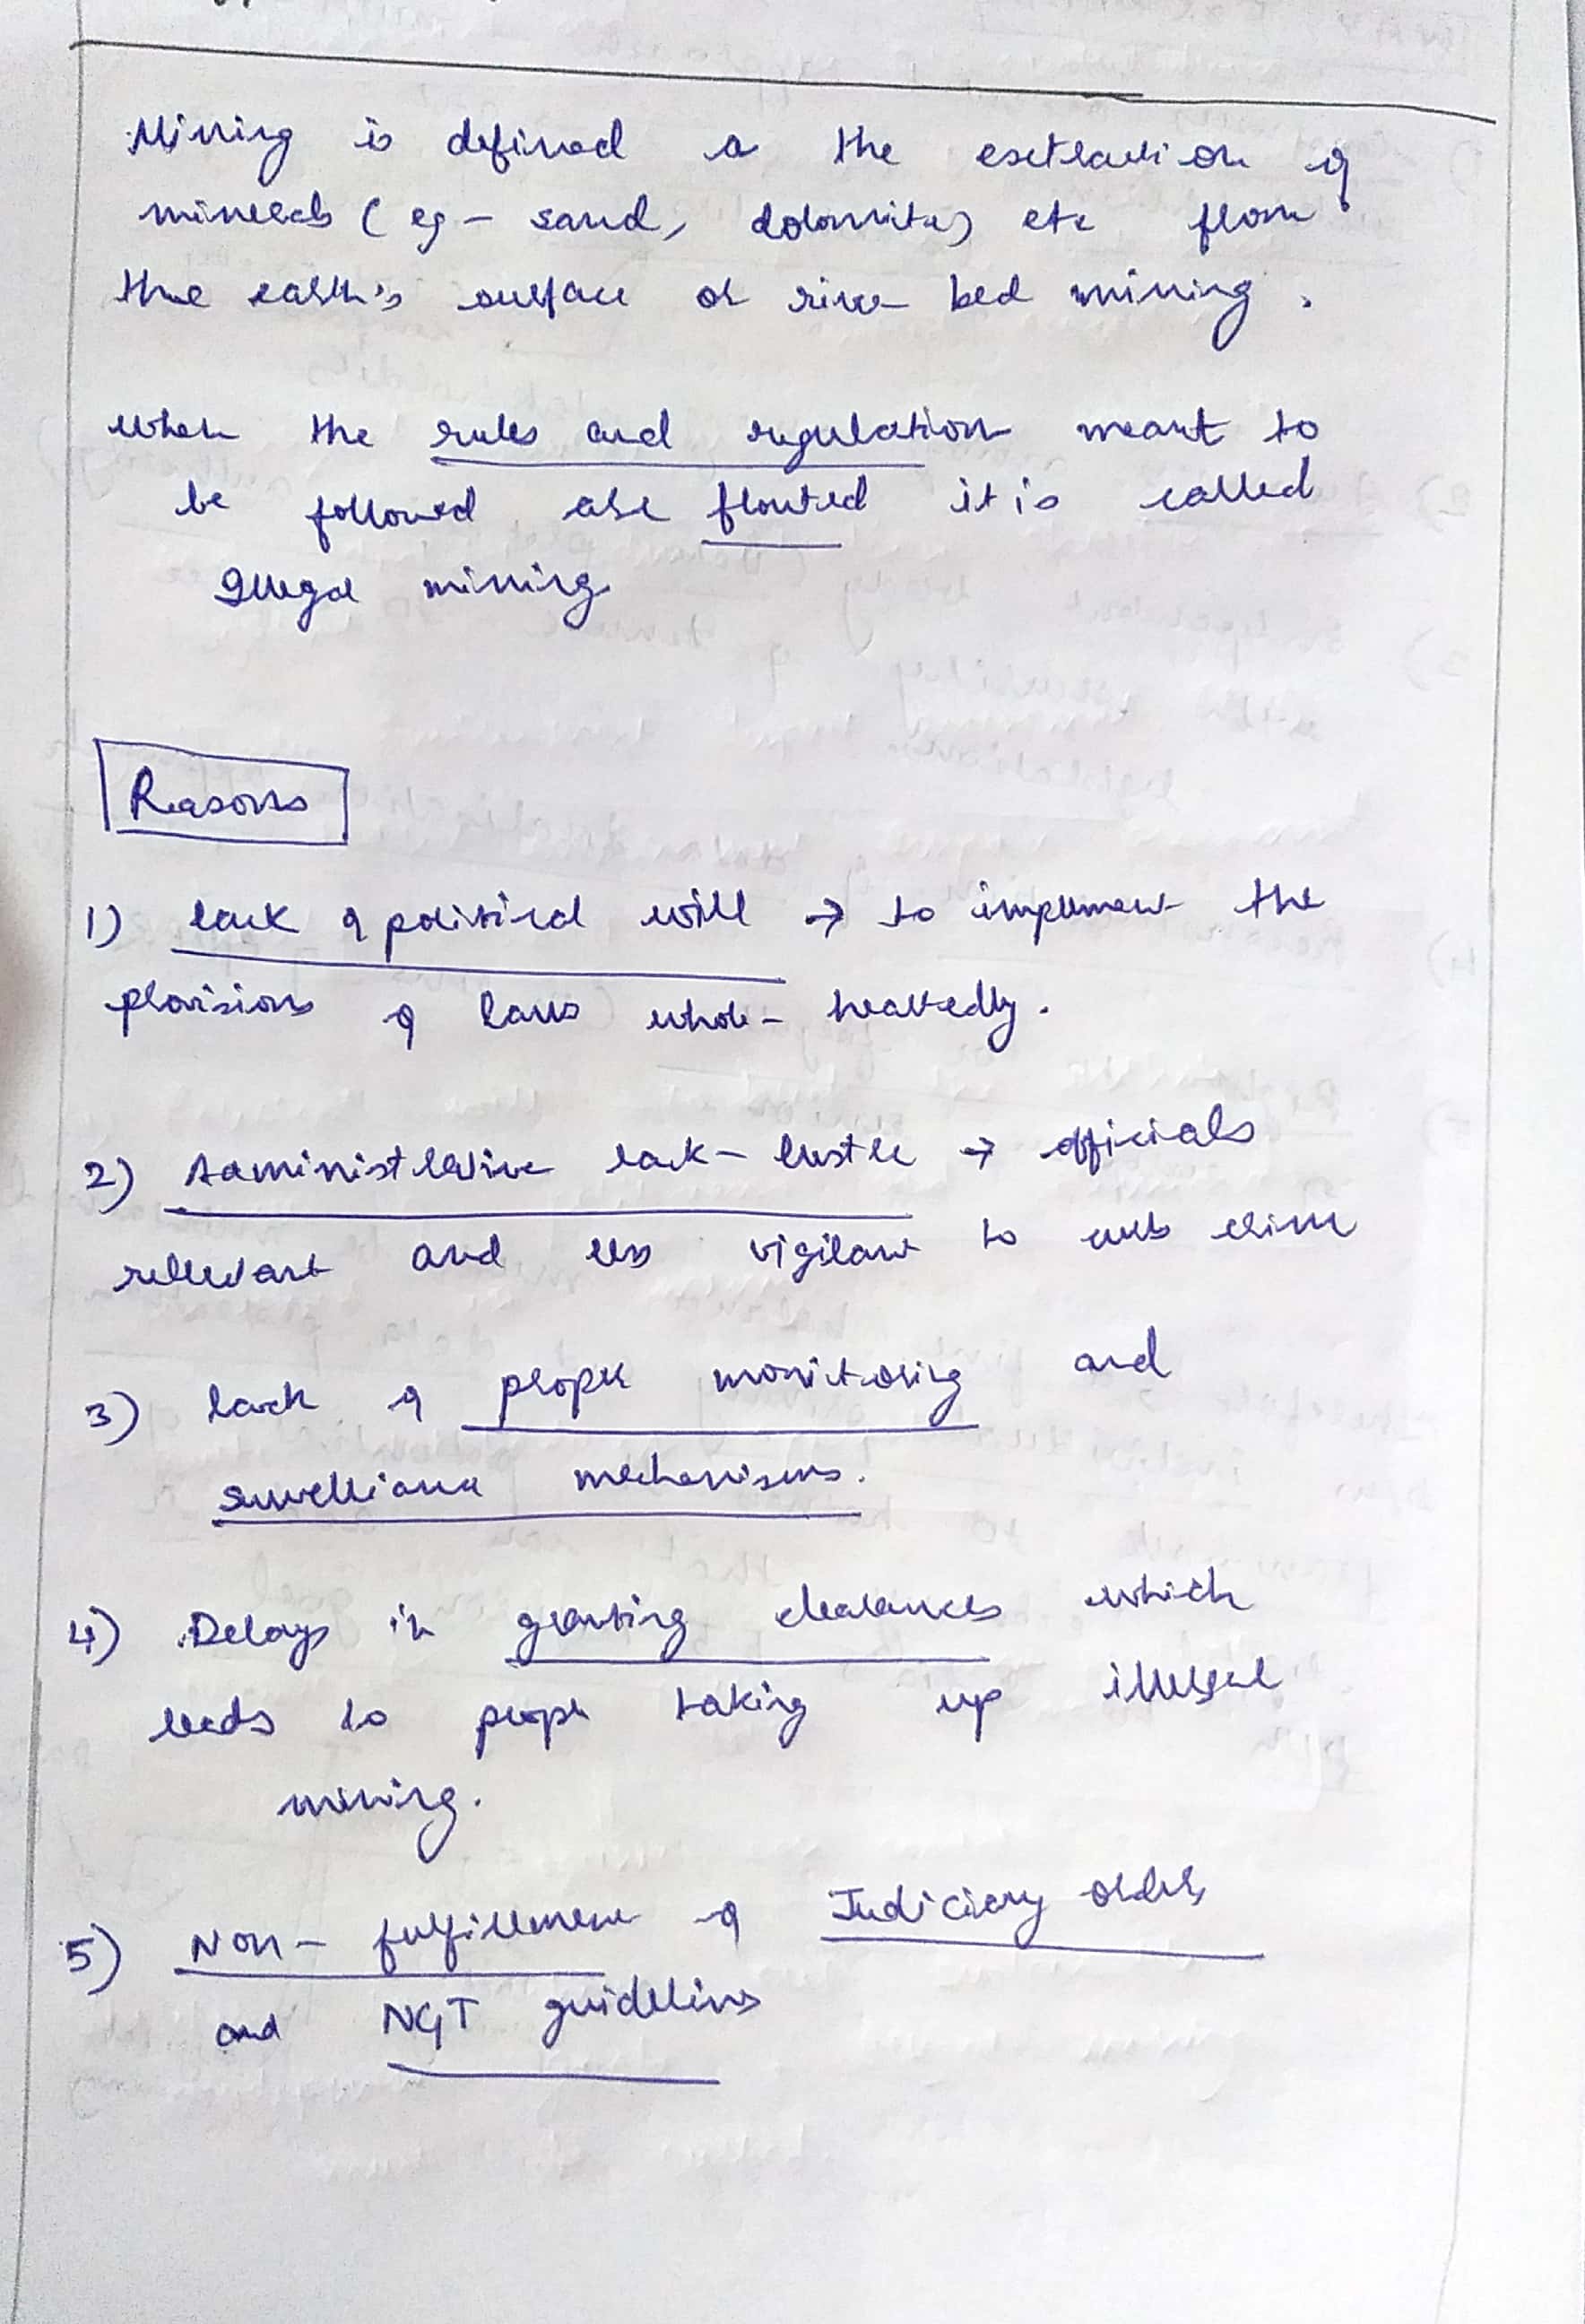 Mining is defined as the extraction of
minerals (eg - sand, dolomite) etc from
the earth's surface or river bed mining.
when the rules and regulation meant to
be followed are flouted it is called
Illegal mining
Reasons
1) lack of political will → to implement the
provisions of laws whole-heartedly.
2) Administrative lack-lustre → officials
and less vigilant to curb crime
3) lack of proper monitoring and
survelliance mechanisms.
4) Delays in granting clearances which
leads to people taking up illegal
mining.
5) Non-fulfillment of Judiciary orders
and NGT guidelines